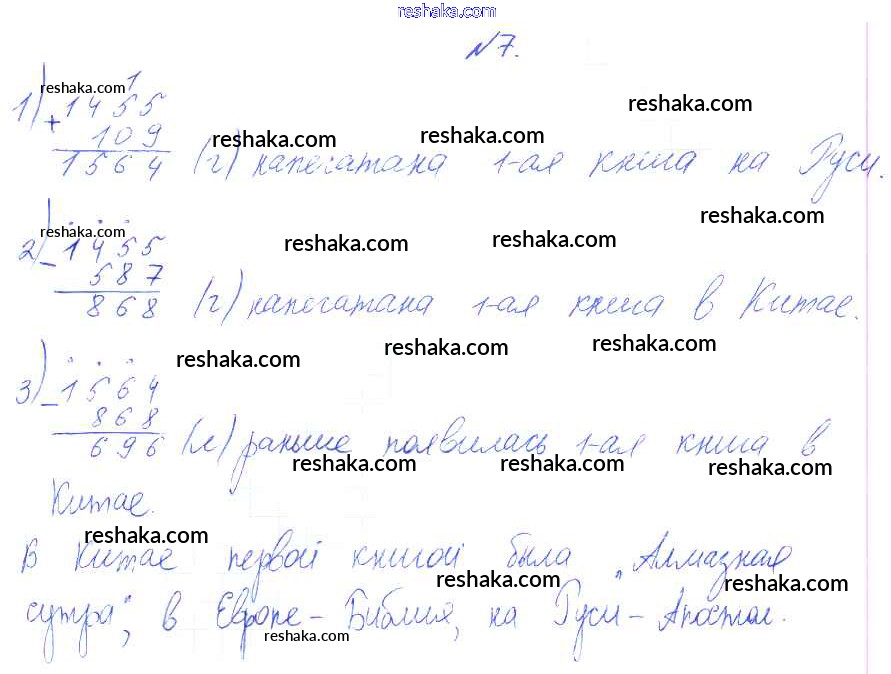 reshaka.com
№7.
reshaka.com 1
1) + 1455 reshaka.com
109 reshaka.com reshaka.com
1564 (г) напечатана 1-ая книга на Руси.
reshaka.com reshaka.com
2) - 1455 reshaka.com reshaka.com
587
868 (г) напечатана 1-ая книга в Китае.
reshaka.com reshaka.com reshaka.com
3) - 1564
868
696 (л) раньше появилась 1-ая книга в
reshaka.com reshaka.com reshaka.com
Китае.
reshaka.com
В Китае первой книгой была „Алмазная
reshaka.com reshaka.com
сутра“, в Европе - Библия, на Руси - Апостол.
reshaka.com